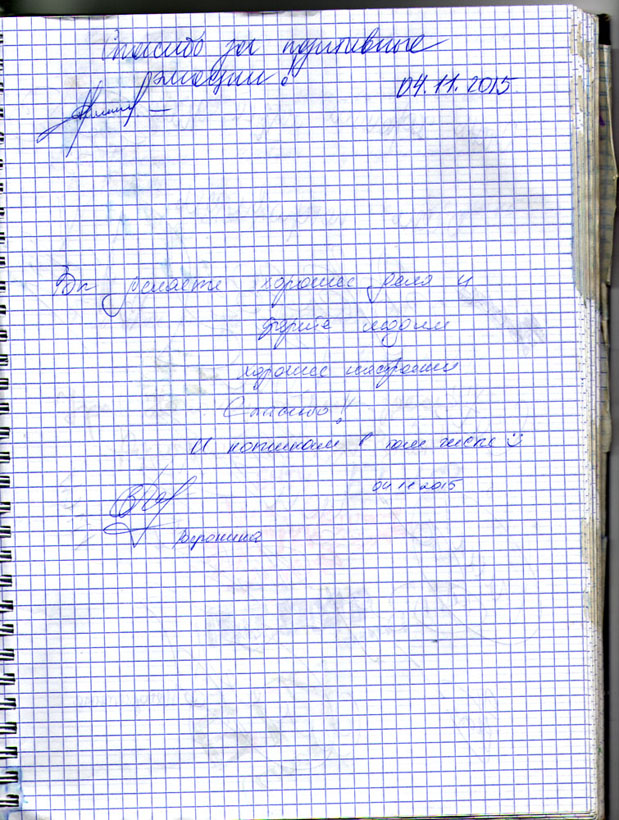 Спасибо за позитивные
эмоции!
04.11.2015
Вы делаете хорошее дела и
дарите людям
хорошее настроение
Спасибо!
И котикам в том числе :)
04 11 2015
Воронина